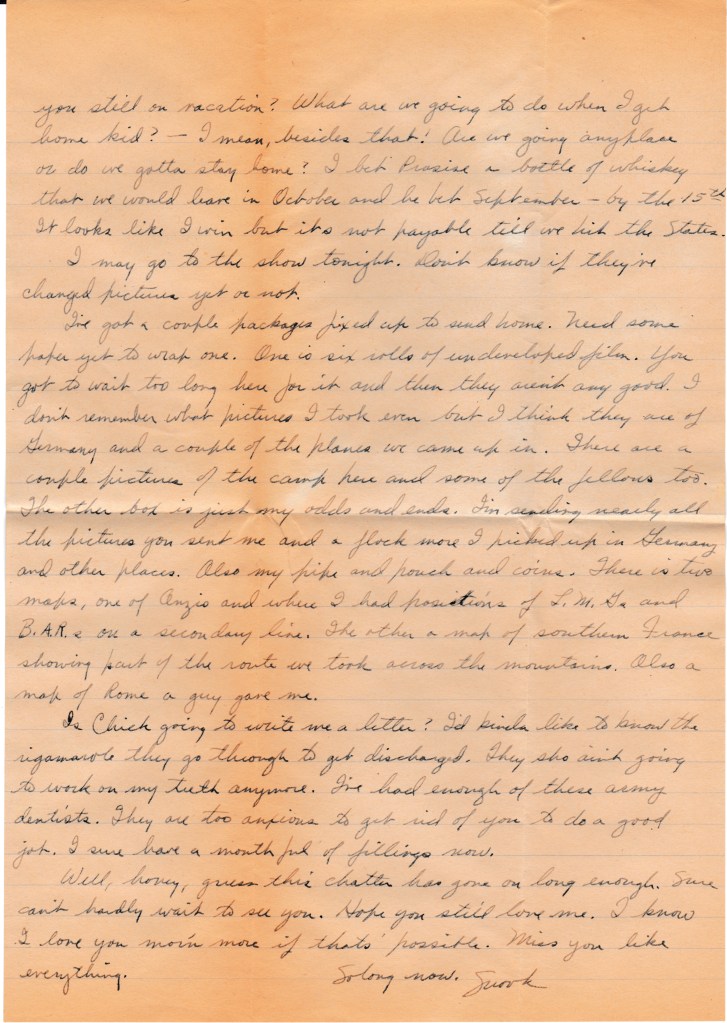 you still on vacation? What are we going to do when I get
home kid? – I mean, besides that! Are we going anyplace
or do we gotta stay home? I bet a bottle of whiskey
that we would leave in October and he bet September – by the 15th
It looks like I win but it's not payable till we hit the States.
I may go to the show tonight. Don't know if they've
changed pictures yet or not.
I've got a couple packages fixed up to send home. Need some
paper yet to wrap one. One is six rolls of undeveloped film. You
got to wait too long here for it and then they aren't any good. I
don't remember what pictures I took even but I think they are of
Germany and a couple of the planes we came up in. There are a
couple pictures of the camp here and some of the fellows too.
The other box is just my odds and ends. I'm sending nearly all
the pictures you sent me and a flock more I picked up in Germany
and other places. Also my pipe and pouch and coins. There is two
maps, one of Anzio and where I had positions of L.M.Gs and
B.A.R.s on a secondary line. The other a map of southern France
showing part of the route we took across the mountains. Also a
map of Rome a guy gave me.
Is Chick going to write me a letter? I'd kinda like to know the
rigamarole they go through to get discharged. They sho ain't going
to work on my teeth anymore. I've had enough of these army
dentists. They are too anxious to get rid of you to do a good
job. I sure have a mouth ful of fillings now.
Well, honey, guess this chatter has gone on long enough. Sure
can't hardly wait to see you. Hope you still love me. I know
I love you mor'n more if thats' possible. Miss you like
everything. So long now. Snook